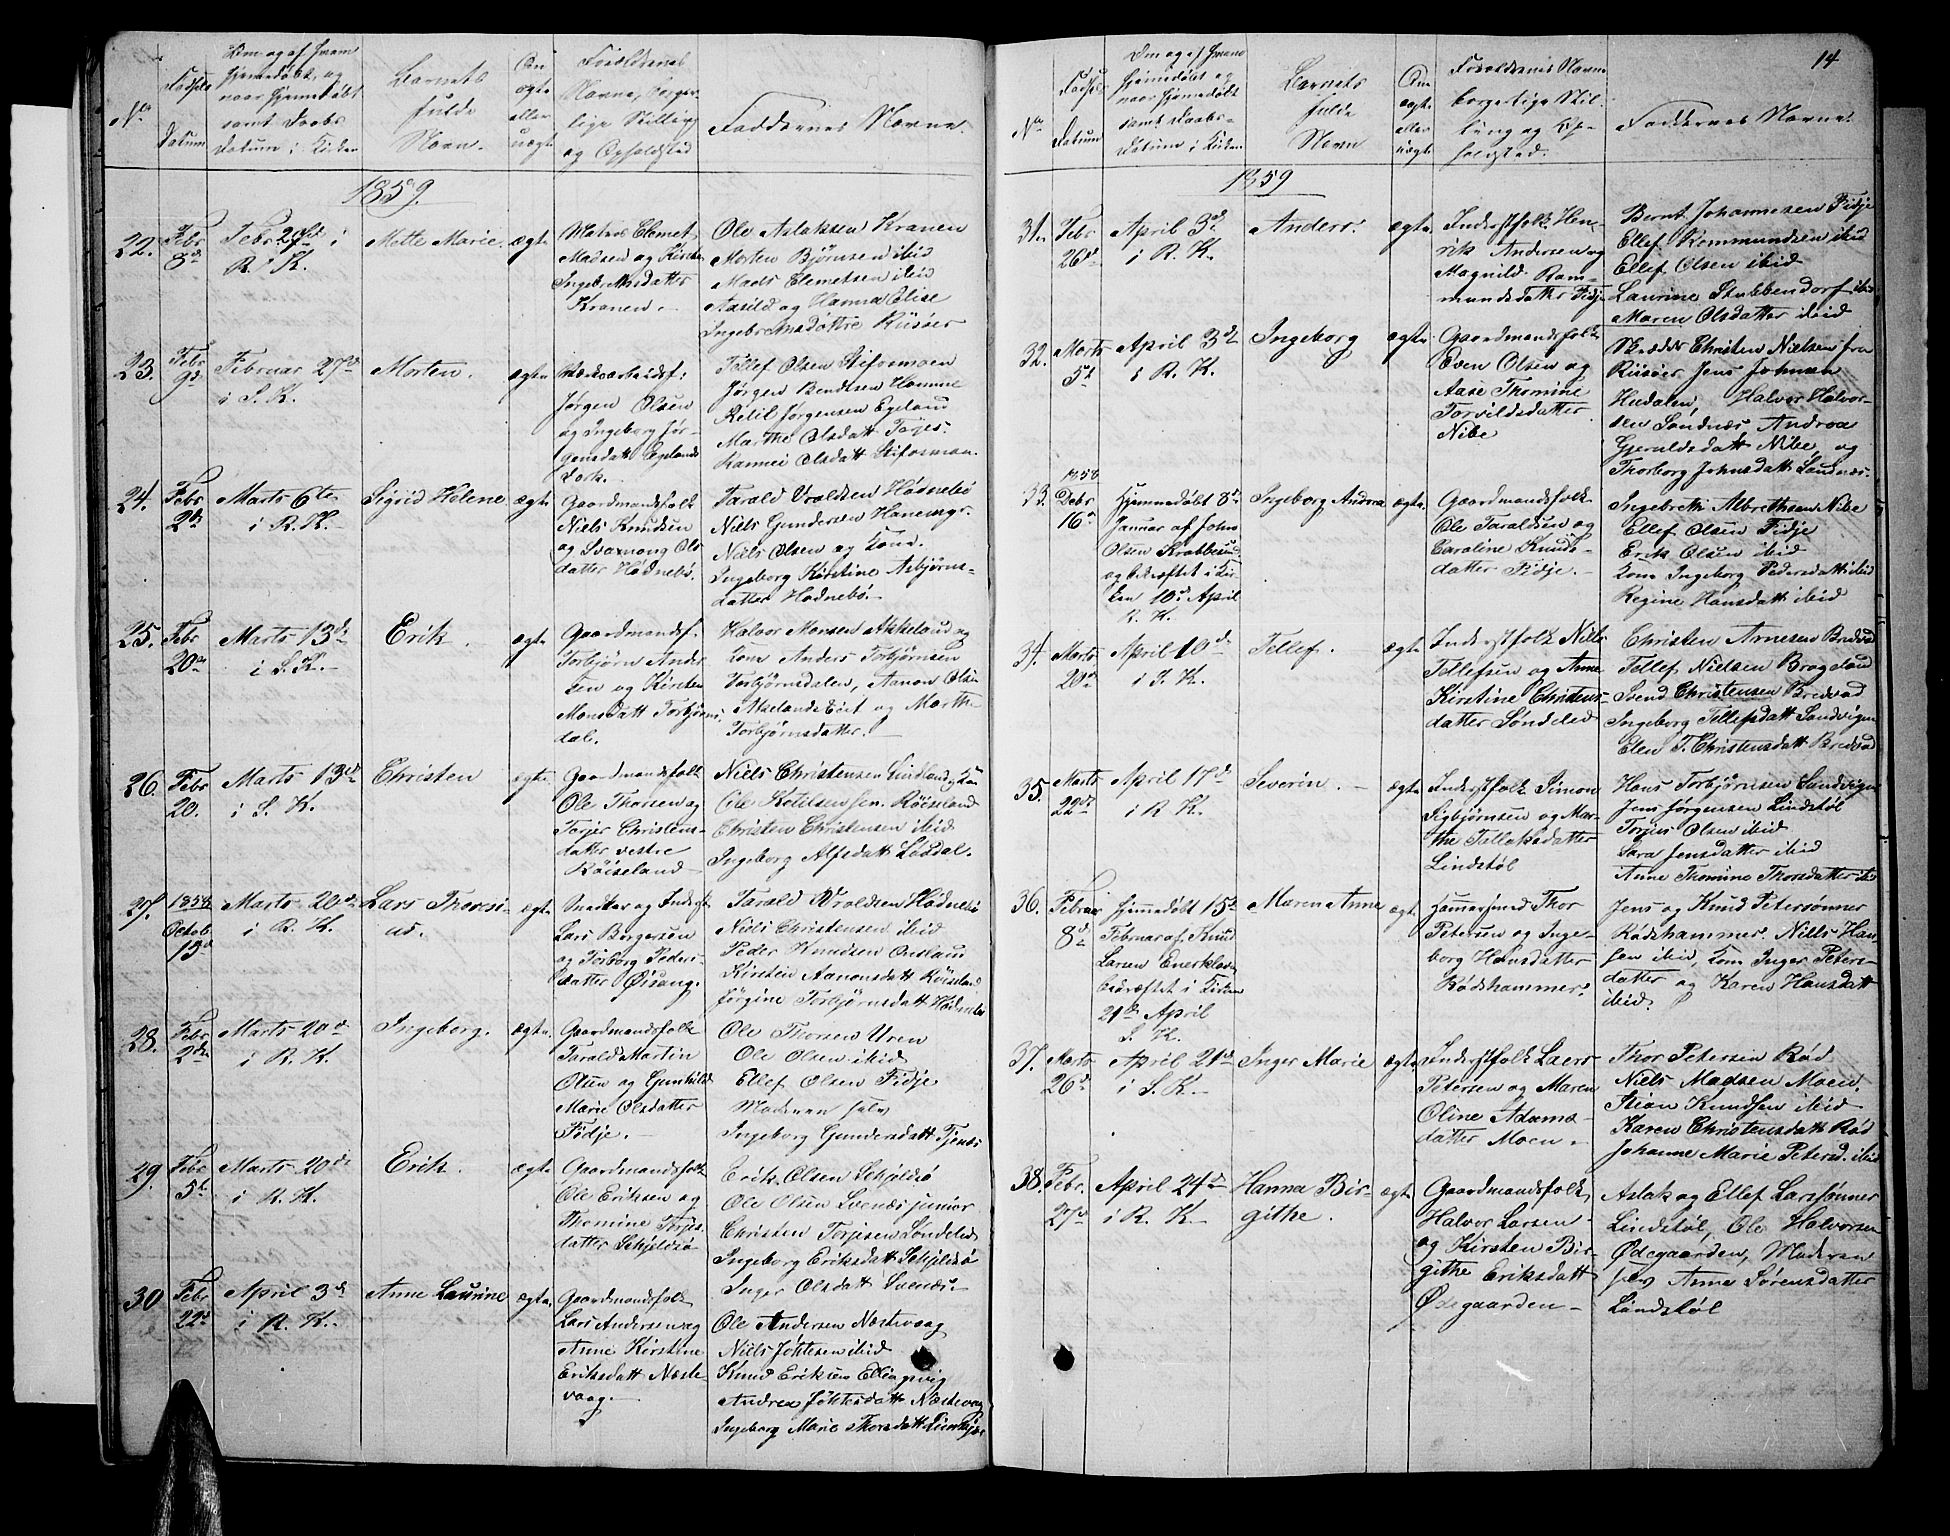 14
No
Fødsels
Datum
Om og af hvem
hjemmedøbt, og
naar hjemmedøbt
samt Daabs
Datum i Kirken
Barnets
fulde
Navn.
Om
ægte
eller
uægte
Forældrenes
Navne, borger-
lige Stilling
og Opholdssted
Faddernes Navne.
1859.
22.
Febr
8de
Febr 27de i
R. K.
Mette Marie.
ægte
Matros Clemet
Madsen og Kirsten
Ingebrethsdatter
Kranen.
Ole Aslaksen Kranen
Morten Bjørnsen ibid
Mads Clemetsen ibid
Aasild og Hanna Elise
Ingebrethsdøttre Risøer
23.
Febr
9de
Februar 27de
i S. K.
Morten.
ægte
Jørgen Olsen
og Ingeborg Jør-
gensdatt Egelands
Værk.
Tellef Olsen Stifosmoen
Jørgen Bendtsen Hamme
Ketil Jørgensen Egeland
Marthe Olsdatt Torjes-
Kammei Olsdatt Stifosmoen.
24.
Febr
2de
Marts 6te
i R. K.
Sigrid Helene
ægte
Gaardmandsfolk
Niels Knudsen
og Svanaug Ols
datter Hødnebø.
Tarald Vraldsen Hødnebø
Niels Gundersen Hanemyr
Niels Olsen og Kone
Ingeborg Kirstine Asbjørns-
datter Hødnebø.
25.
Febr
20de
Marts 13de
i S. K.
Erik.
ægte
Gaardmandsf.
Torbjørn Ander
sen og Kirsten
Monsdatt Torbjørns-
dal.
Halvor Monsen Akkeland og
Kone Anders Torbjørnsen
Torbjørnsdalen, Aanon Olsen
Akelands Eiet og Marthe
Torbjørnsdatter.
26.
Febr
20.
Marts 13de
i S. K.
Christen
ægte
Gaardmandsfolk
Ole Thorsen og
Torjer Christens-
datter vestre
Røiseland
Niels Christensen Lindland og Kone
Ole Ketilsen sen. Røiseland
Christen Christensen ibid
Ingeborg Alfsdatt Løvdal.
27.
1858
Octob
13de
Marts 20de
i R. K.
Lars Thorsi-
us.
ægte
Snedker og Inderst
Lars Børgersen
og Torborg Peders-
datter Øisang.
Tarald Vraldsen Hødnebø
Niels Christensen ibid
Peder Knudsen Onslaun
Kirsten Aanonsdatt Røiseland
Jørgine Torbjørnsdatt Hødnebø
28.
Febr
2de
Marts 20de
i R. K.
Ingeborg.
ægte
Gaardmandsfolk
Tarald Martin
Olsen og Gunhild
Marie Olsdatter
Fidje.
Ole Thorsen Uren
Ole Olsen ibid
Ellef Olsen Fidje
Moderen selv
Ingeborg Gundersdatt Tjenæs
29.
Febr
5te
Marts 20de
i R. K.
Erik.
ægte
Gaardmandsfolk
Ole Eriksen og
Thomine Torjes-
datter Skjeldsø
Erik Olsen Skjeldsø
Ole Olsen Svenæs junior
Christen Torjesen Søndeled
Ingeborg Eriksdatt Skjeldsø
Inger Olsdatt Svenæs
30
Febr
22de
April 3de
i R. K.
Anne Laurine
ægte
Gaardmandsfolk
Lars Andersen og
Anne Kirstine
Eriksdatt Næste-
vaag.
Ole Andersen Næstevaag
Niels Johtesen ibid
Knud Eriksen Ellingsvig
Andrea Johtesdatt Næstevaag
Ingeborg Marie Thorsdatt
No
Fødsels
Datum
Om og af hvem
hjemmedøbt og
naar hjemmedøbt
samt Daabs-
Datum i Kirken
Barnets
fulde
Navn
Om
ægte
eller
uægte
Forældrenes Navne
borgerlige Stil-
ling og Op-
holdssted.
Faddernes Navne.
1859
31.
Febr
26de
April 3de
i R. K.
Anders.
ægte
Inderstfolk Hen-
rik Andersen og
Magnild Rom-
mundsdatter Fidje
Bernt Johannesen Fidje
Ellef Rommundsen ibid
Ellef Olsen ibid
Laurine Stubbendorf ibid
Maren Olsdatter ibid
32.
Marts
5te
April 3de
i R. K.
Ingeborg
ægte
Gaardmandsfolk
Even Olsen og
Aase Thomine
Torvildsdatter
Nibe
Skrædder Christen Nielsen fra
Risøer Jens Johnsen
Hødalen, Halvor Halvor-
sen Sandnæs, Andrea
Gjeruldsdatt Nibe, og
Thorborg Johnsdatt Sandnæs.
33.
1858
Debr
16de
Hjemmedøbt 8de
Januar af John
Olsen Krabbesund
og bekræftet i Kir-
ken 10de April
R. K.
Ingeborg Andrea
ægte.
Gaardmandsfolk
Ole Taraldsen og
Caroline Knuds-
datter Fidje.
Ingebreth Albrethsen Nibe
Ellef Olsen Fidje
Erik Olsen ibid
Kone Ingeborg Pedersdatt ibid
Regine Hansdatt ibid
34.
Marts
20de
April 10de
i S. K.
Tellef.
ægte
Inderstfolk Niels
Tellefsen og Anne
Kirstine Christens-
datter Søndeled
Christen Arnesen Bredvad
Tellef Nielsen Brogeland
Svend Christensen Bredvad
Ingeborg Tellefsdatt Sandvigen
Elen T. Christensdatt Bredvad
35.
Marts
22de
April 17de
i R. K.
Severin.
ægte
Inderstfolk Simon
Sigbjørnsen og Mar-
the Tellaksdatter
Lindstøl
Hans Torbjørnsen Sandvigen
Jens Jørgensen Lindstøl
Torjus Olsen ibid
Sara Jensdatter ibid
Anne Thomine Thorsdatter ibid
36.
Februar
8de
Hjemmedøbt 15de
Februar af Knud
Larsen Enerklev
bekræftet i Kirken
21de April
S. K.
Maren Anne
ægte
Hammersmed Thor
Petersen og Inge-
borg Hansdatter
Rødshammer.
Jens og Knud Petersønner
Rødshammer. Niels Han-
sen ibid, Kone Inger Peters-
datter og Karen Hansdatt
ibid.
37.
Marts
26de
April 21de
i S. K.
Inger Marie
ægte
Inderstfolk Laers
Petersen og Maren
Oline Adams-
datter Moen.
Thor Petersen Rød
Niels Madsen Moen.
Stian Knudsen ibid
Karen Christensdatt Rød
Johanne Marie Petersd. ibid
38.
Febr.
27de
April 24de
i R. K.
Hanna Bir-
githe.
ægte
Gaardmandsfolk
Halvor Larsen
og Kirsten Bir-
githe Eriksdatt
Ødegaarden
Aslak og Ellef Larssønner
Lindstøl, Ole Halvorsen
Ødegaarden, Moderen
selv Anne Sørensdatter
Lindstøl